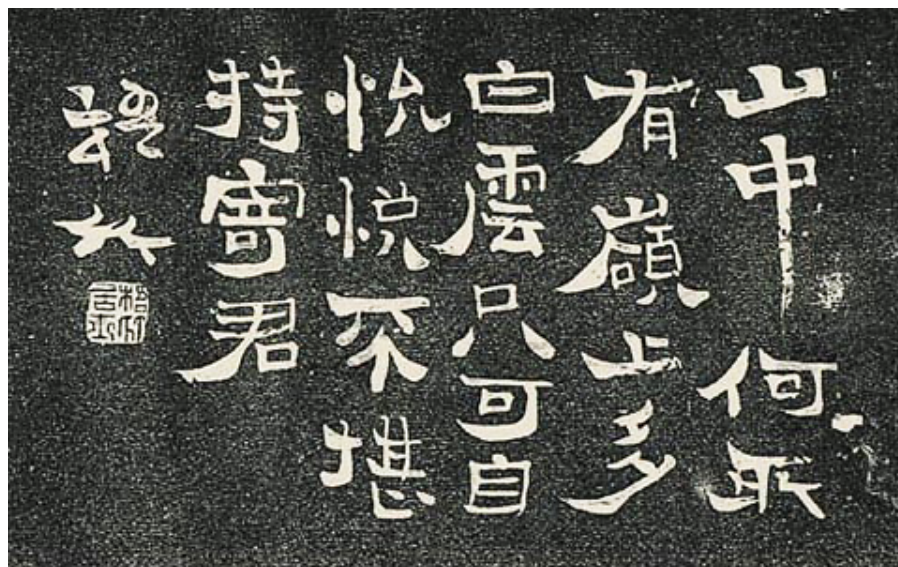 山中何所
有嶺上多
白雲只可自
怡悅不堪
持寄君